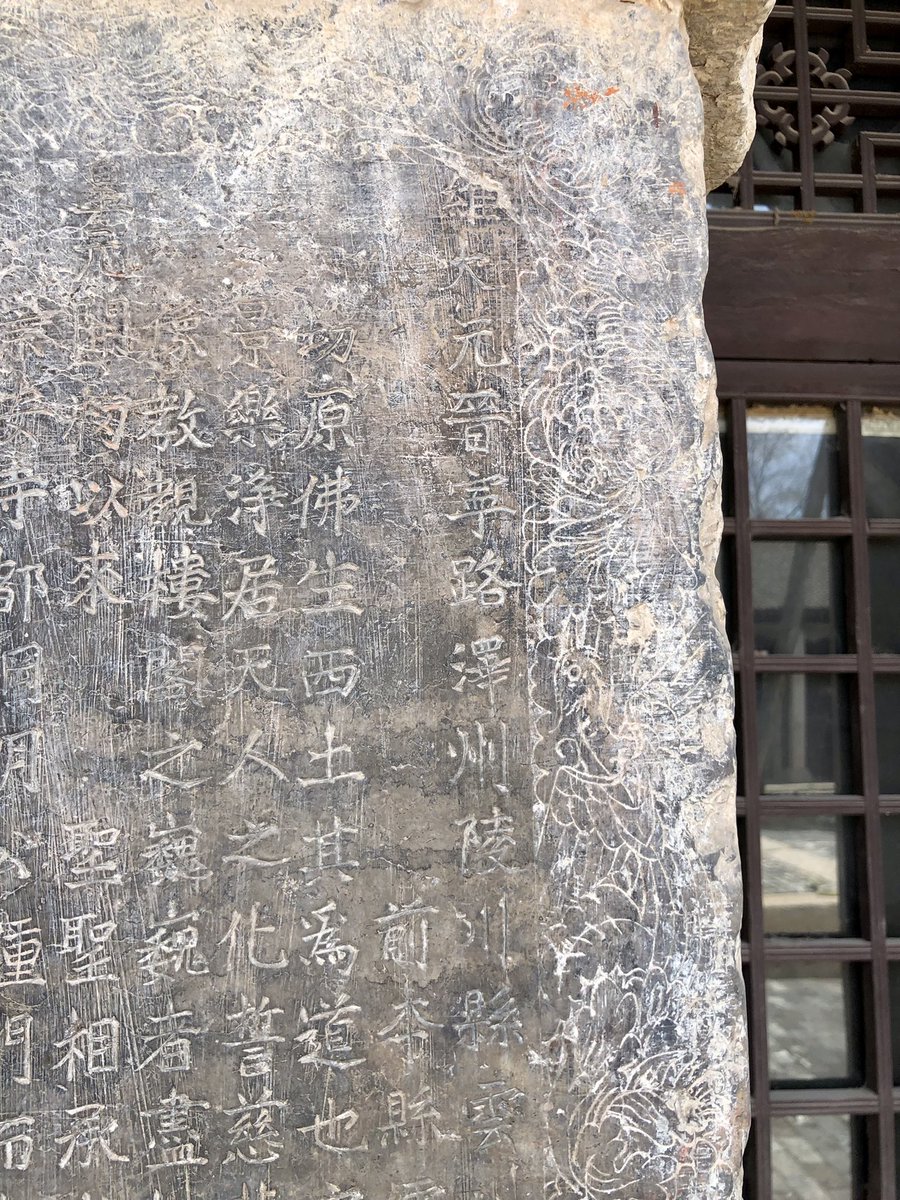 維大元晉寧路澤州陵川縣雲
前本縣
切原佛生西土其爲道也
景樂淨居天人之化誓慈
像教觀樓閣之巍巍者盡
以來 聖聖相承
寺部 重門而